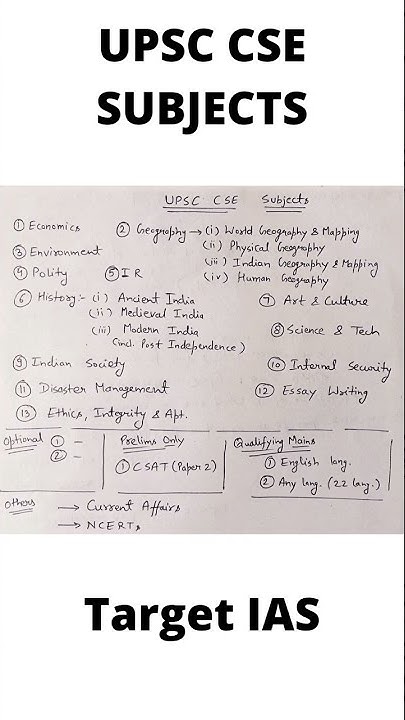 UPSC CSE
SUBJECTS
UPSC CSE Subjects
① Economics
② Geography → (i) World Geography & Mapping
(ii) Physical Geography
(iii) Indian Geography & Mapping
(iv) Human Geography
③ Environment
④ Polity ⑤ I R
⑥ History:- (i) Ancient India
(ii) Medieval India
(iii) Modern India
(incl. Post Independence)
⑦ Art & Culture
⑧ Science & Tech
⑨ Indian Society
⑩ Internal Security
⑪ Disaster Management
⑫ Essay Writing
⑬ Ethics, Integrity & Apt.
Optional ① –
② –
Prelims Only
① CSAT (Paper 2)
Qualifying Mains
① English lang.
② Any lang. (22 lang.)
Others → Current Affairs
→ NCERTs
Target IAS